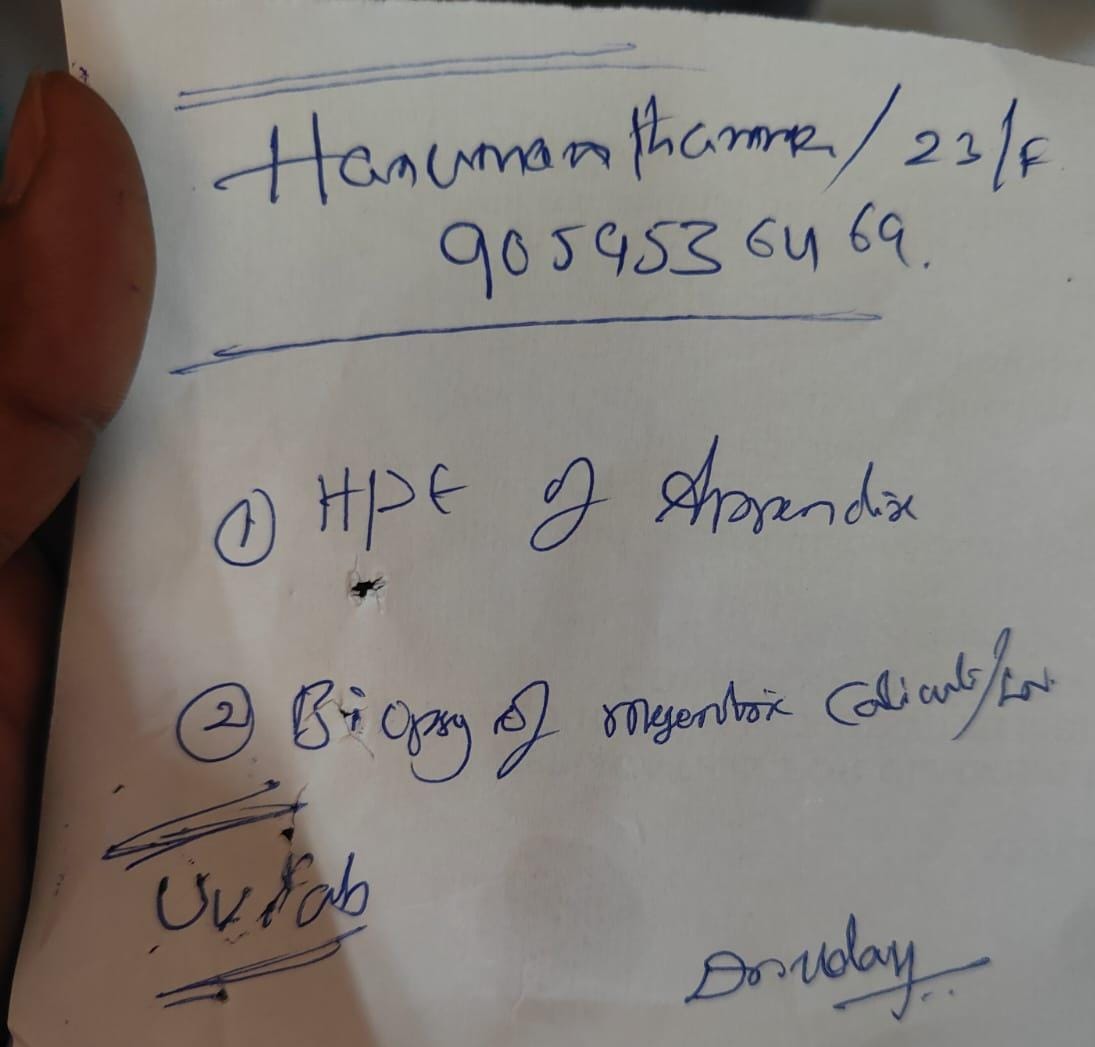 Hanumanthamma / 23/F
9059536469.
① HPE of Appendix
② Biopsy of
UV Lab
Dr. Uday